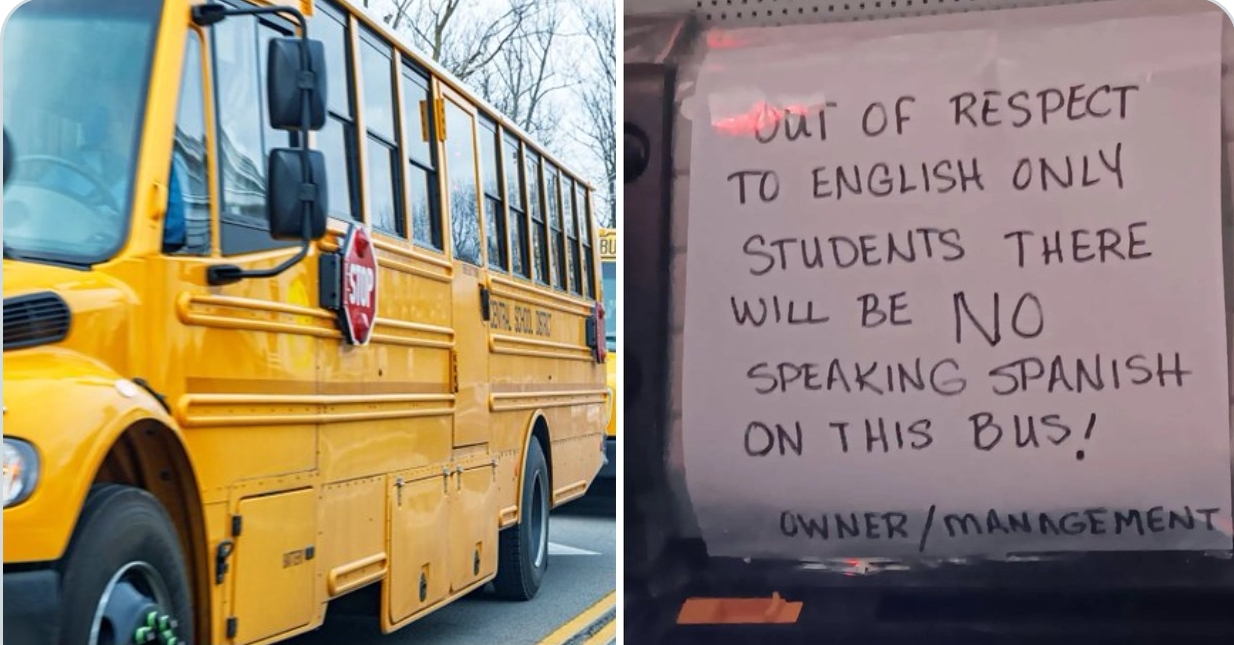 STOP
CENTRAL SCHOOL DISTRICT
BU
OUT OF RESPECT
TO ENGLISH ONLY
STUDENTS THERE
WILL BE NO
SPEAKING SPANISH
ON THIS BUS!
OWNER/MANAGEMENT